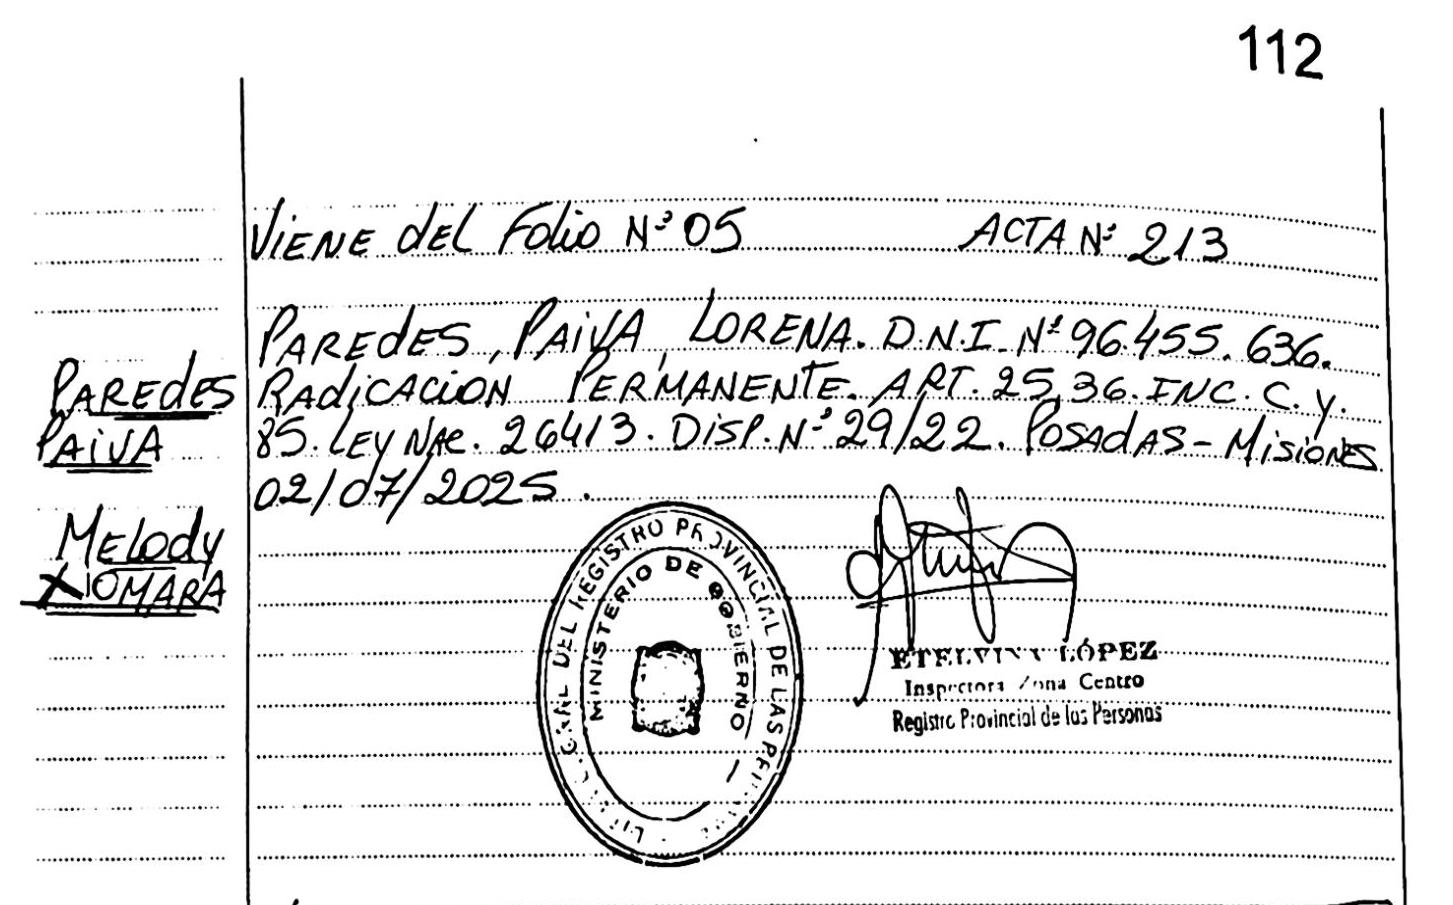 112
Viene del Folio Nº 05 ACTA Nº 213
PAREDES, PAIVA, LORENA. D.N.I. Nº 96.455.636.
RADICACION PERMANENTE. ART. 25,36. INC. C. y.
85. LEY NAC. 26413. DISP. Nº 29/22. POSADAS - MISIONES
02/07/2025.
PAREDES
PAIVA
MELODY
XIOMARA
GRAL DEL REGISTRO PROVINCIAL DE LAS
MINISTERIO DE GOBIERNO
ETELVINA LÓPEZ
Inspectora Zona Centro
Registro Provincial de las Personas